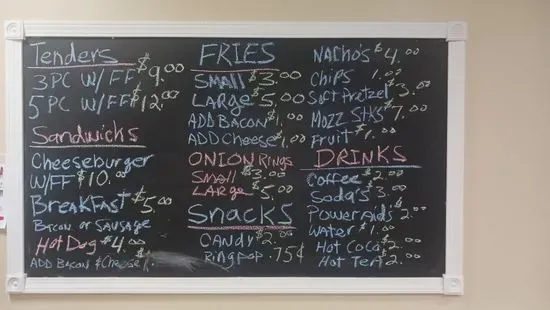 Tenders
3PC W/FF $9.00
5PC W/FF $12.00
Sandwicks
Cheeseburger
W/FF $10.00
BreakFast $5.00
Bacon or Sausage
Hot Dog $4.00
ADD Bacon & Cheese 1.
FRIES
Small $3.00
Large $5.00
ADD Bacon $1.00
ADD Cheese $1.00
ONION Rings
Small $3.00
Large $5.00
Snacks
CANDY $2.00
Ringpop .75¢
Nacho's $4.00
Chips 1.00
Soft Pretzel $3.00
Mozz Stks $7.00
Fruit $1.00
DRINKS
Coffee $2.00
Soda's $3.00
PowerAids $2.00
Water $1.00
Hot CoCo $2.00
Hot Tea $2.00